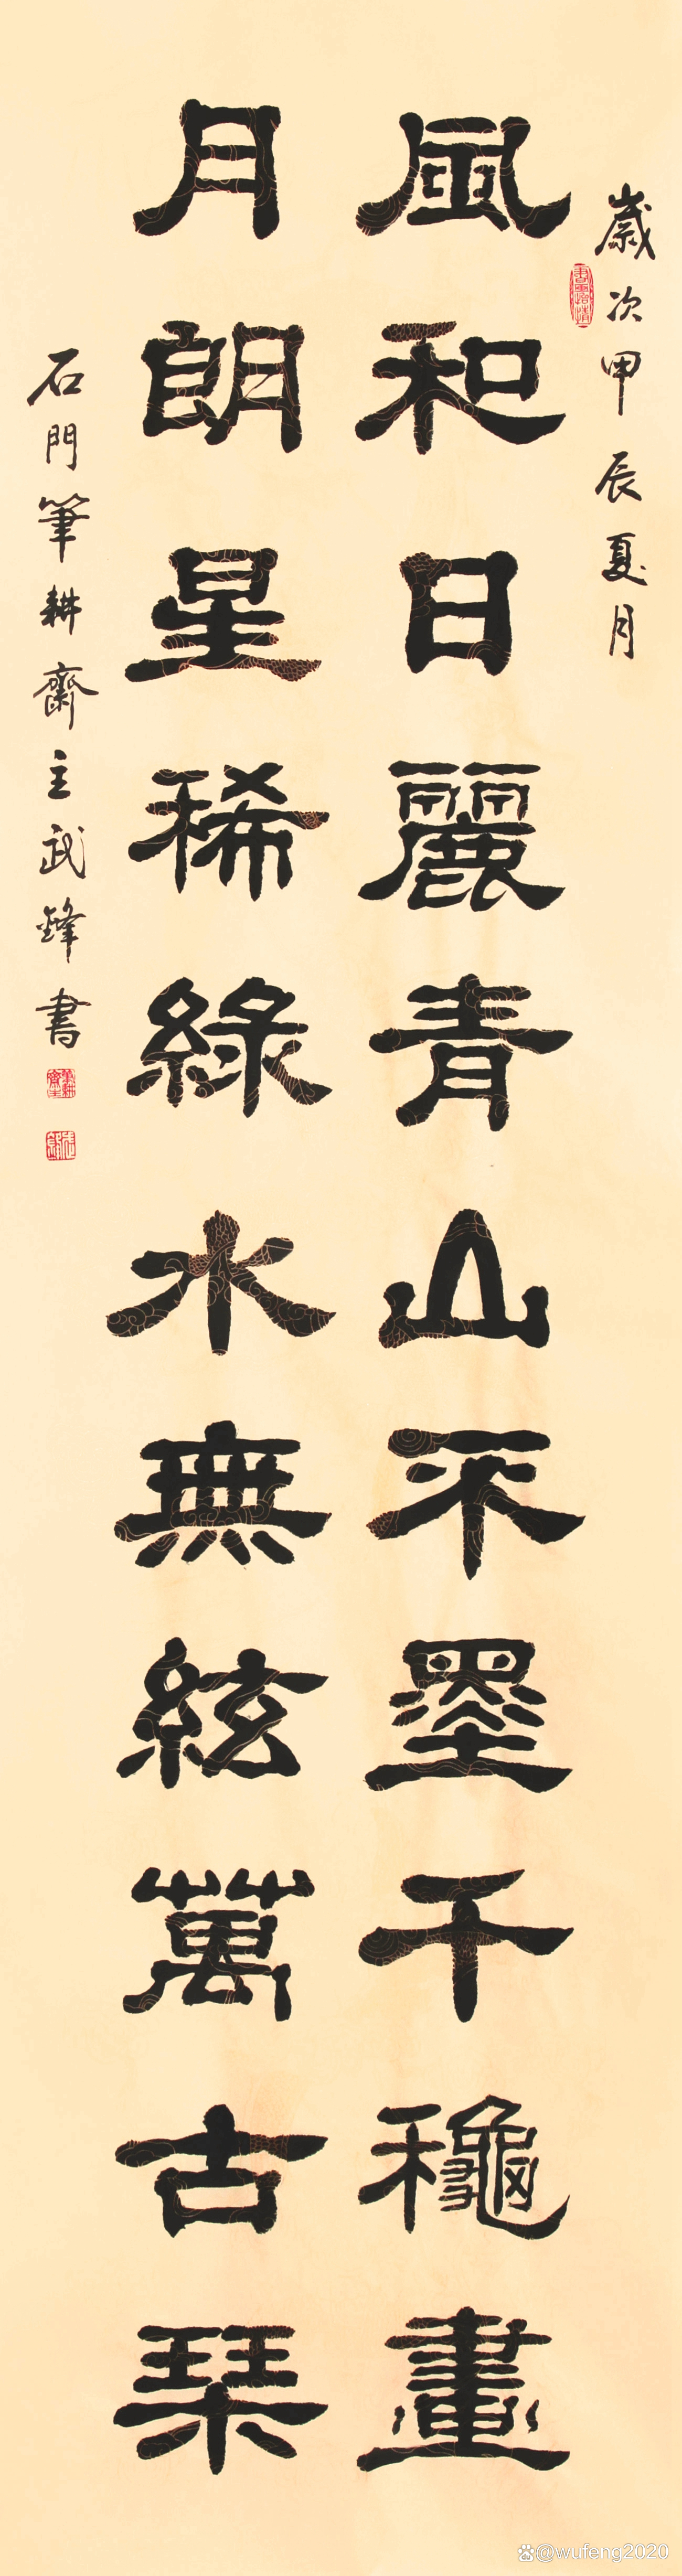 歲次甲辰夏月
風和日麗青山不墨千龝畫
月朗星稀綠水無絃萬古琴
石門筆耕齋主武鋒書
筆耕齋主
@wufeng2020